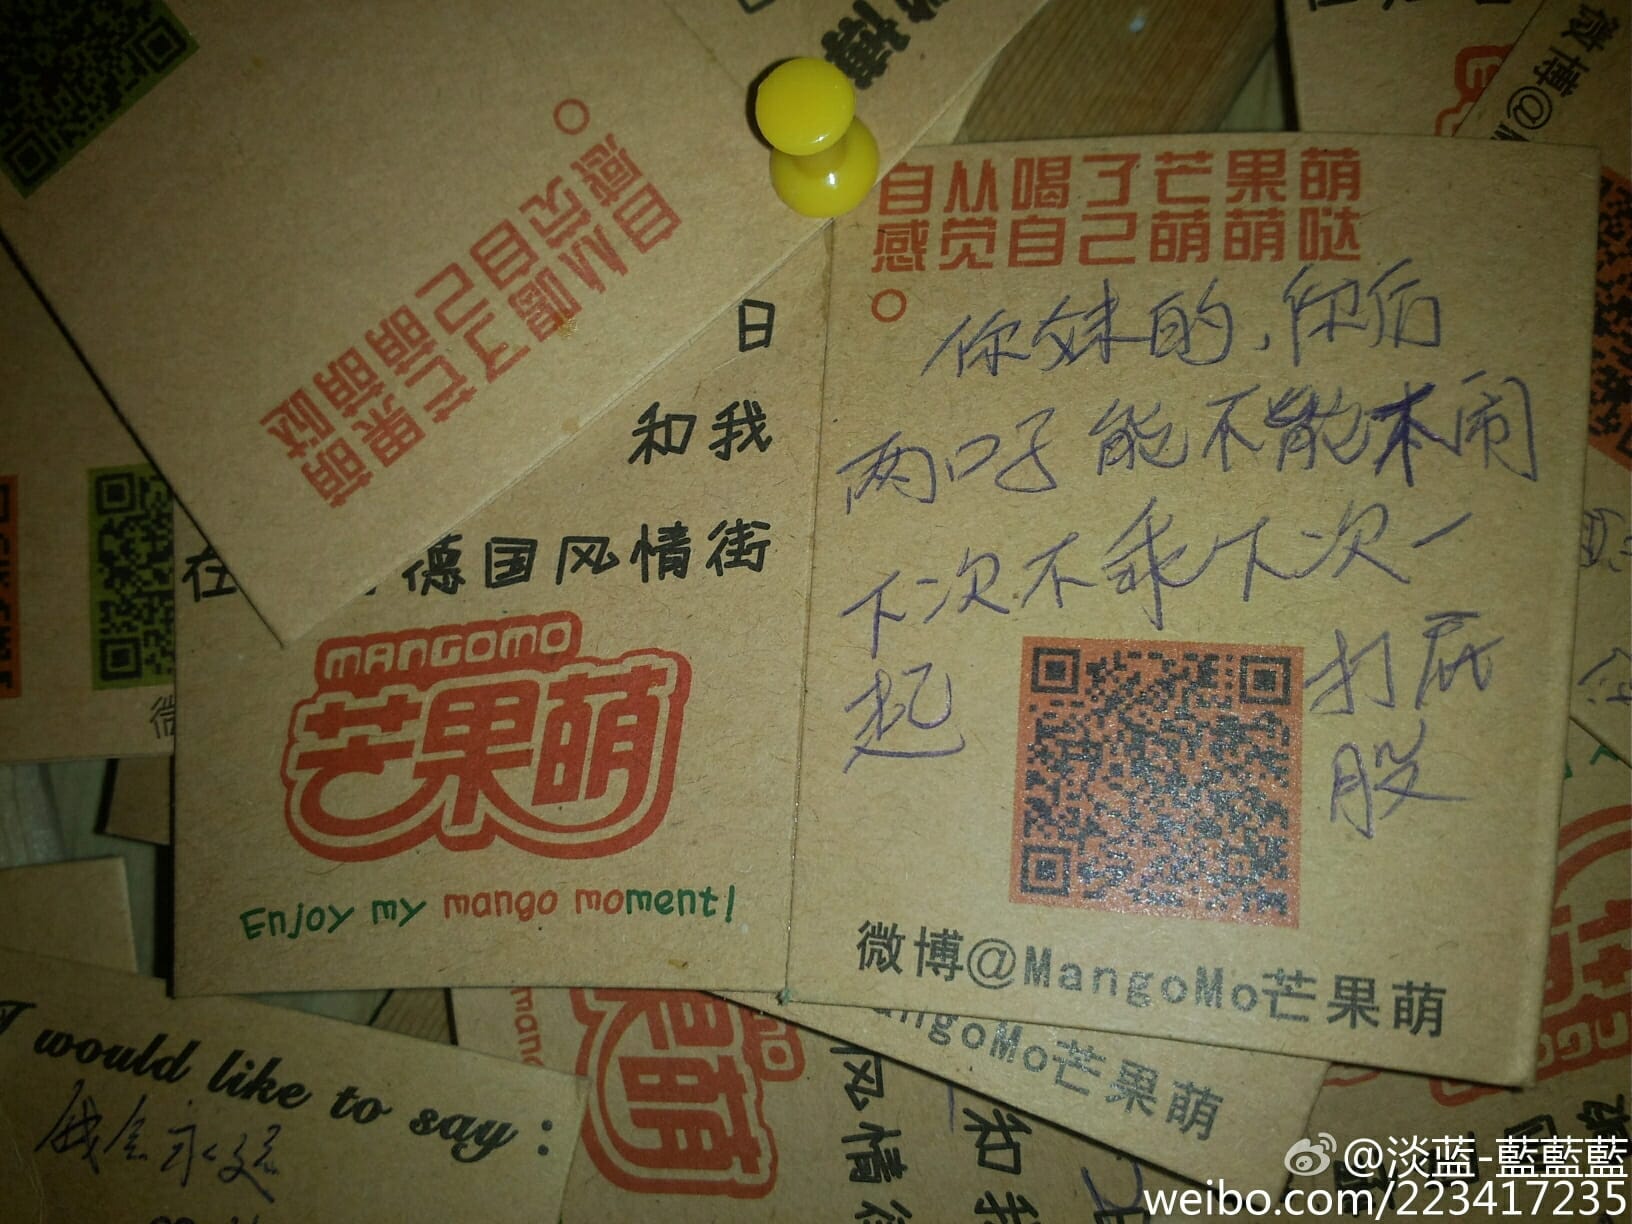 微博
自从喝了芒果萌
感觉自己萌萌哒
自从喝了芒果萌
感觉自己萌萌哒
你妹的,你们
两口子能不能不闹
下次不乖下次一
起
打屁
股
微博@MangoMo芒果萌
日
和我
在
德国风情街
MANGOMO
芒果萌
Enjoy my mango moment!
微博@M
微
I would like to say:
我会永远
mang
ngoMo芒果萌
果萌
风情街
和我
@淡蓝-藍藍藍
weibo.com/223417235